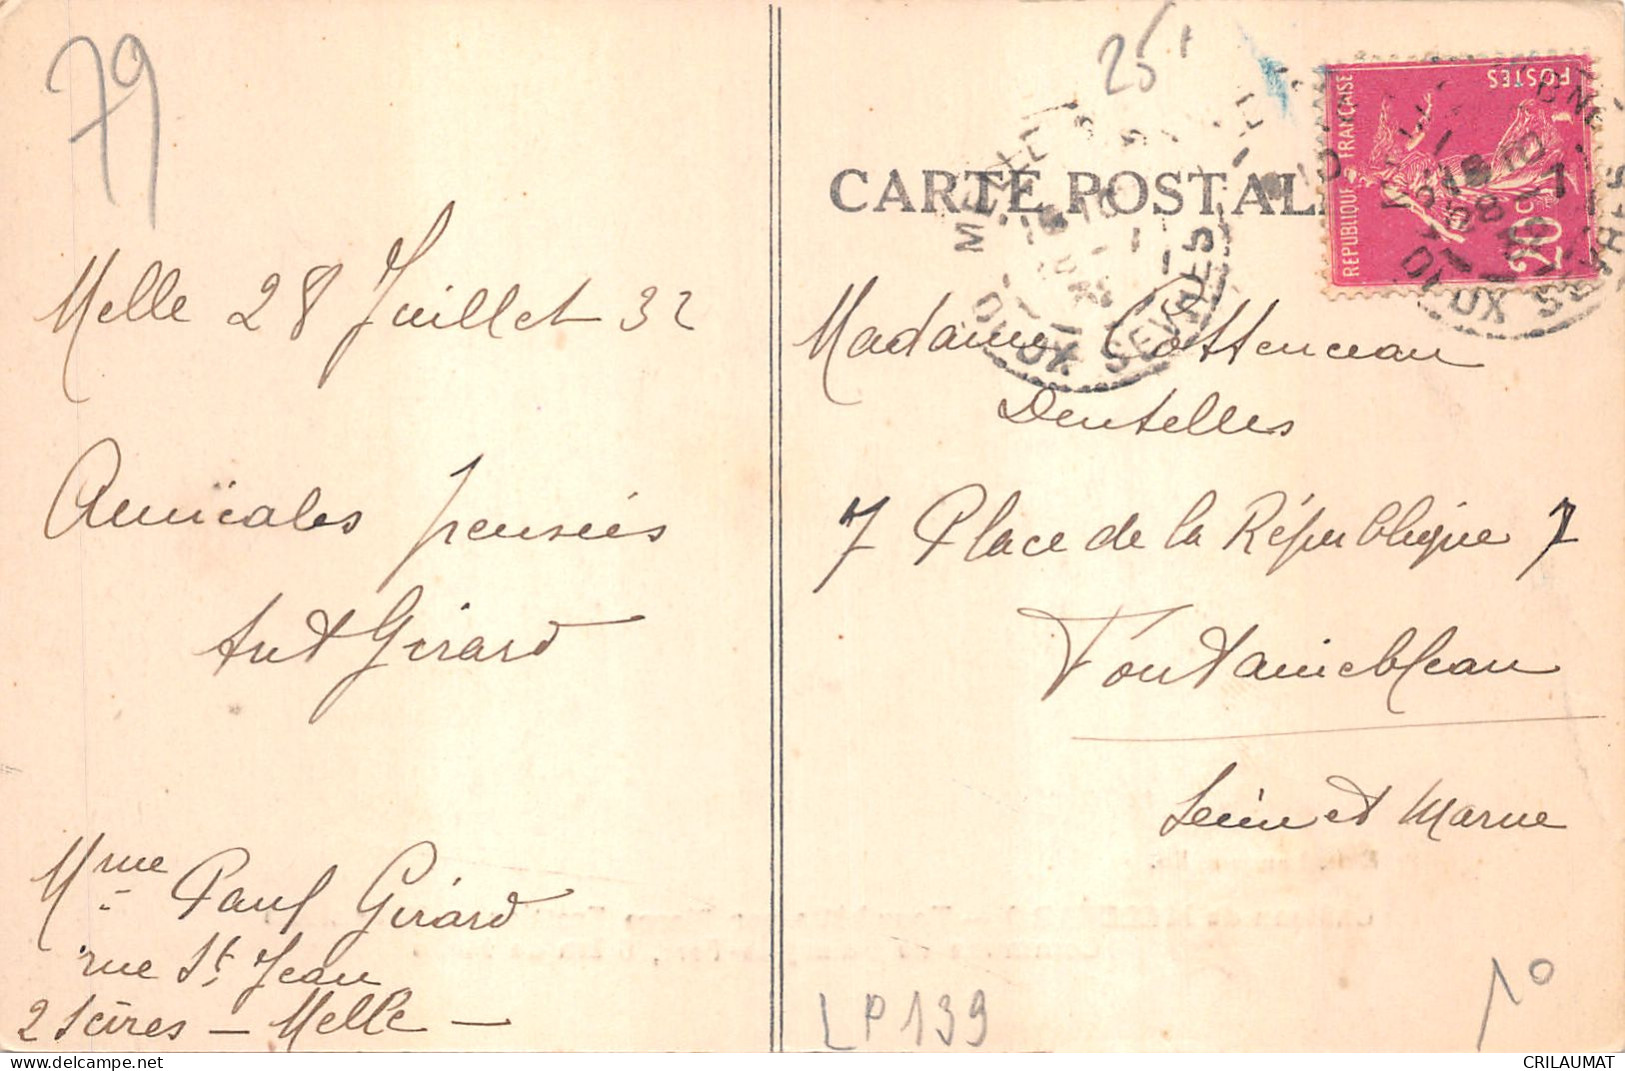 79
25
CARTE POSTALE
REPUBLIQUE FRANÇAISE
POSTES
20c
MELLE
DEUX SEVRES
DEUX SEVRES
Melle 28 Juillet 32
Amicales pensées
Ant Girard
Mme Paul Girard
rue St Jean
2 Sèvres — Melle —
Madame Cottenceau
Dentelles
7 Place de la République 7
Fontainebleau
Seine et Marne
LP139
10
CRILAUMAT